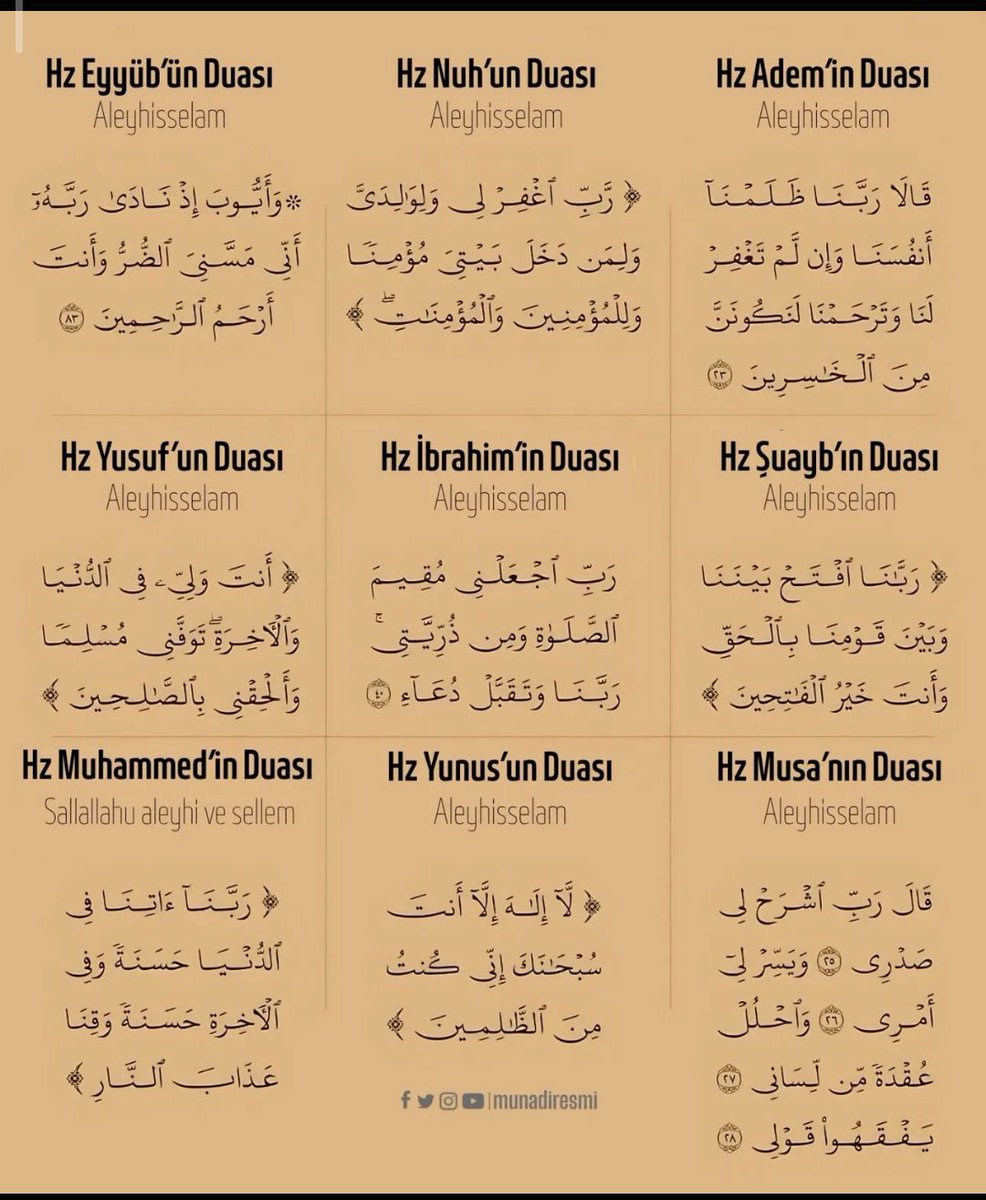 Hz Eyyüb'ün Duası
Aleyhisselam
۞وَأَيُّوبَ إِذۡ نَادَىٰ رَبَّهُۥٓ
أَنِّي مَسَّنِيَ ٱلضُّرُّ وَأَنتَ
أَرۡحَمُ ٱلرَّٰحِمِينَ ٨٣
Hz Nuh'un Duası
Aleyhisselam
﴿ رَّبِّ ٱغۡفِرۡ لِي وَلِوَٰلِدَيَّ
وَلِمَن دَخَلَ بَيۡتِيَ مُؤۡمِنٗا
وَلِلۡمُؤۡمِنِينَ وَٱلۡمُؤۡمِنَٰتِۖ ﴾
Hz Adem'in Duası
Aleyhisselam
قَالَا رَبَّنَا ظَلَمۡنَآ
أَنفُسَنَا وَإِن لَّمۡ تَغۡفِرۡ
لَنَا وَتَرۡحَمۡنَا لَنَكُونَنَّ
مِنَ ٱلۡخَٰسِرِينَ ٢٣
Hz Yusuf'un Duası
Aleyhisselam
﴿ أَنتَ وَلِيِّۦ فِي ٱلدُّنۡيَا
وَٱلۡأٓخِرَةِۖ تَوَفَّنِي مُسۡلِمٗا
وَأَلۡحِقۡنِي بِٱلصَّٰلِحِينَ ﴾
Hz İbrahim'in Duası
Aleyhisselam
رَبِّ ٱجۡعَلۡنِي مُقِيمَ
ٱلصَّلَوٰةِ وَمِن ذُرِّيَّتِيۚ
رَبَّنَا وَتَقَبَّلۡ دُعَآءِ ٤٠
Hz Şuayb'ın Duası
Aleyhisselam
﴿ رَبَّنَا ٱفۡتَحۡ بَيۡنَنَا
وَبَيۡنَ قَوۡمِنَا بِٱلۡحَقِّ
وَأَنتَ خَيۡرُ ٱلۡفَٰتِحِينَ ﴾
Hz Muhammed'in Duası
Sallallahu aleyhi ve sellem
﴿ رَبَّنَآ ءَاتِنَا فِي
ٱلدُّنۡيَا حَسَنَةٗ وَفِي
ٱلۡأٓخِرَةِ حَسَنَةٗ وَقِنَا
عَذَابَ ٱلنَّارِ ﴾
Hz Yunus'un Duası
Aleyhisselam
﴿ لَّآ إِلَٰهَ إِلَّآ أَنتَ
سُبۡحَٰنَكَ إِنِّي كُنتُ
مِنَ ٱلظَّٰلِمِينَ ﴾
Hz Musa'nın Duası
Aleyhisselam
قَالَ رَبِّ ٱشۡرَحۡ لِي
صَدۡرِي ٢٥ وَيَسِّرۡ لِيٓ
أَمۡرِي ٢٦ وَٱحۡلُلۡ
عُقۡدَةٗ مِّن لِّسَانِي ٢٧
يَفۡقَهُواْ قَوۡلِي ٢٨
munadiresmi